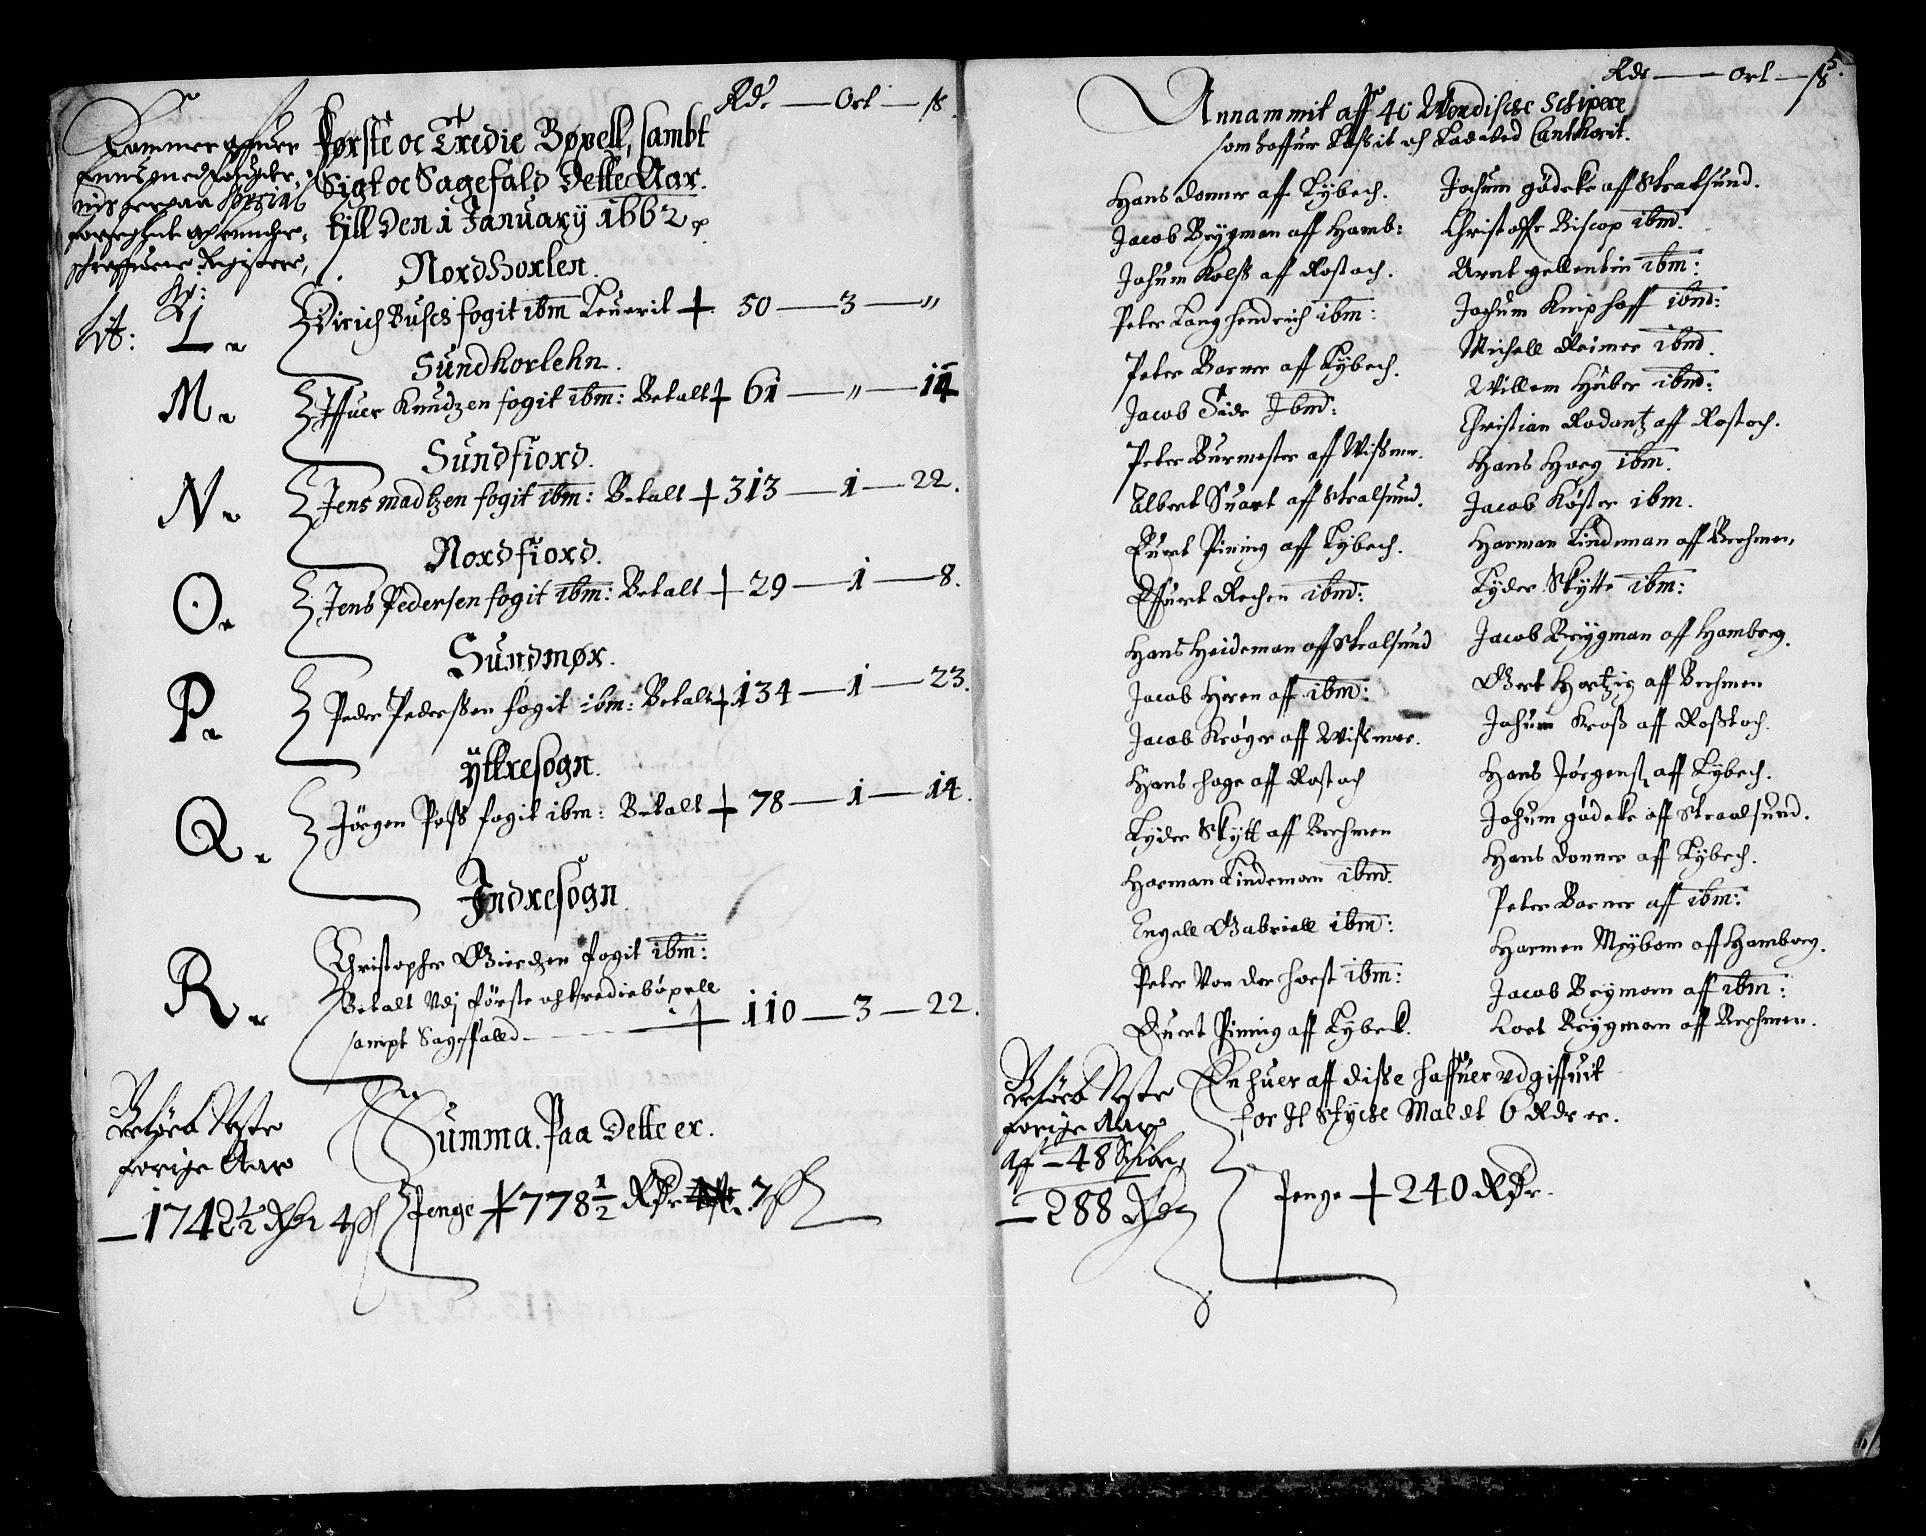 Rd. — Ort — ß
Første oc Tredie Bøxell, sambt
Sigt oc Sagefald Dette Aar.
till Den 1 January 1662
Nordhorlen.
Lit: L.
Dirich Busch fogit ibm Leuerit + 50 — 3 — "
Sundhorlehn.
M.
Iffuer Knudzen fogit ibm: Betalt + 61 — " — 14
Sundfiord.
N.
Jens madtzen fogit ibm: Betalt + 313 — 1 — 22.
Nordfiord.
O.
Jens Pedersen fogit ibm: Betalt + 29 — 1 — 8.
Sundmør.
P.
Peder Pederssen fogit ibm: Betalt + 134 — 1 — 23.
Yttresogn.
Q.
Jörgen Poss fogit ibm: Betalt + 78 — 1 — 14.
Indresogn
R.
Christopher Giertzen fogit ibm:
Betalt Vdj første och trediebøxell
sampt Sagefalld — + 110 — 3 — 22.
Beløeb Neste
forige Aar
— 1742½ Rdr 4 ß
Summa. Paa Dette er.
Penge + 778½ Rdr 7 ß
5.
Rdr — Ort — ß
Annammit aff 40 Wendische Schipere
som haffuer Lossit och Ladet ved Canthorit.
Hans Donner aff Lybech.
Jacob Brygman aff Hamb:
Johum Kolss aff Rostoch.
Peter Langhendrich ibm:
Peter Barner aff Lybech.
Jacob Side Ibmd:
Peter Burmester aff Wissmer.
Albert Suart aff Stralsund.
Euert Pining aff Lybech.
Effuert Rechen ibmd:
Hans Heideman aff Stralsund
Jacob Heren aff ibm:
Jacob Krøger aff Wissmer.
Hans hage aff Rostoch
Lyder Skytt aff Brehmen
Harman Lindeman ibmd.
Engell Gabriell ibm:
Peter Von der horst ibm:
Euert Pining aff Lybeck.
Jochum gødeke aff Stralsund.
Christoffer Biscop ibmd.
Arent gellentin ibm:
Jochum Kniphoff ibmd:
Michell Reimer ibmd.
Willem Huber ibmd:
Christian Radantz aff Rostoch.
Hans Hoeg ibm.
Jacob Køster ibm.
Harman Lindeman aff Brehmen,
Lyder Skytte ibm:
Jacob Brygman aff Hamborg.
Gert Hartzig aff Brehmen
Johum Kross aff Rosstoch.
Hans Jørgenss aff Lybech.
Johum gødeke aff Straalsund.
Hans Donner aff Lybech.
Peter Barner aff ibm:
Harmen Meybom aff Hamborg.
Jacob Brygman aff ibm:
Lort Brygman aff Brehmen.
Beløeb Neste
forige Aar
Aff — 48 Schipe,
— 288 Rdr
En huer aff disse haffuer udgiffuit
for It Stycke Maldt 6 Rdr er.
Penge + 240 Rdr.